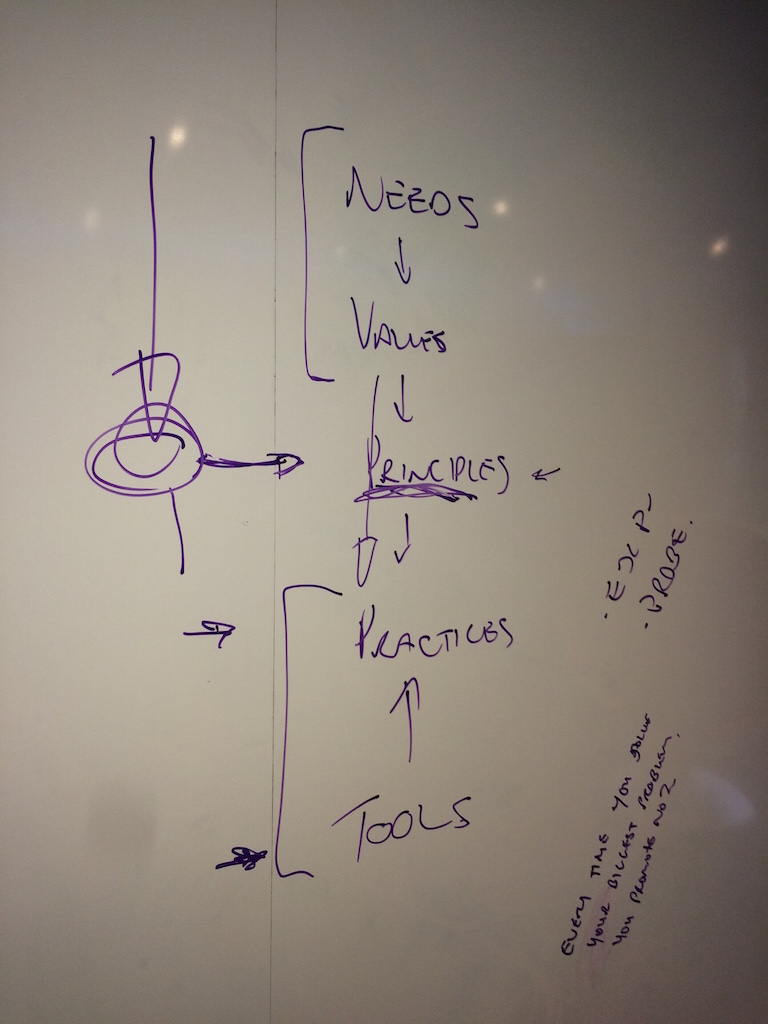 NEEDS
VALUES
PRINCIPLES
PRACTICES
TOOLS
· EXP-
· PROBE.
EVERY TIME YOU SOLVE
YOUR BIGGEST PROBLEM,
YOU PROMOTE NO 2